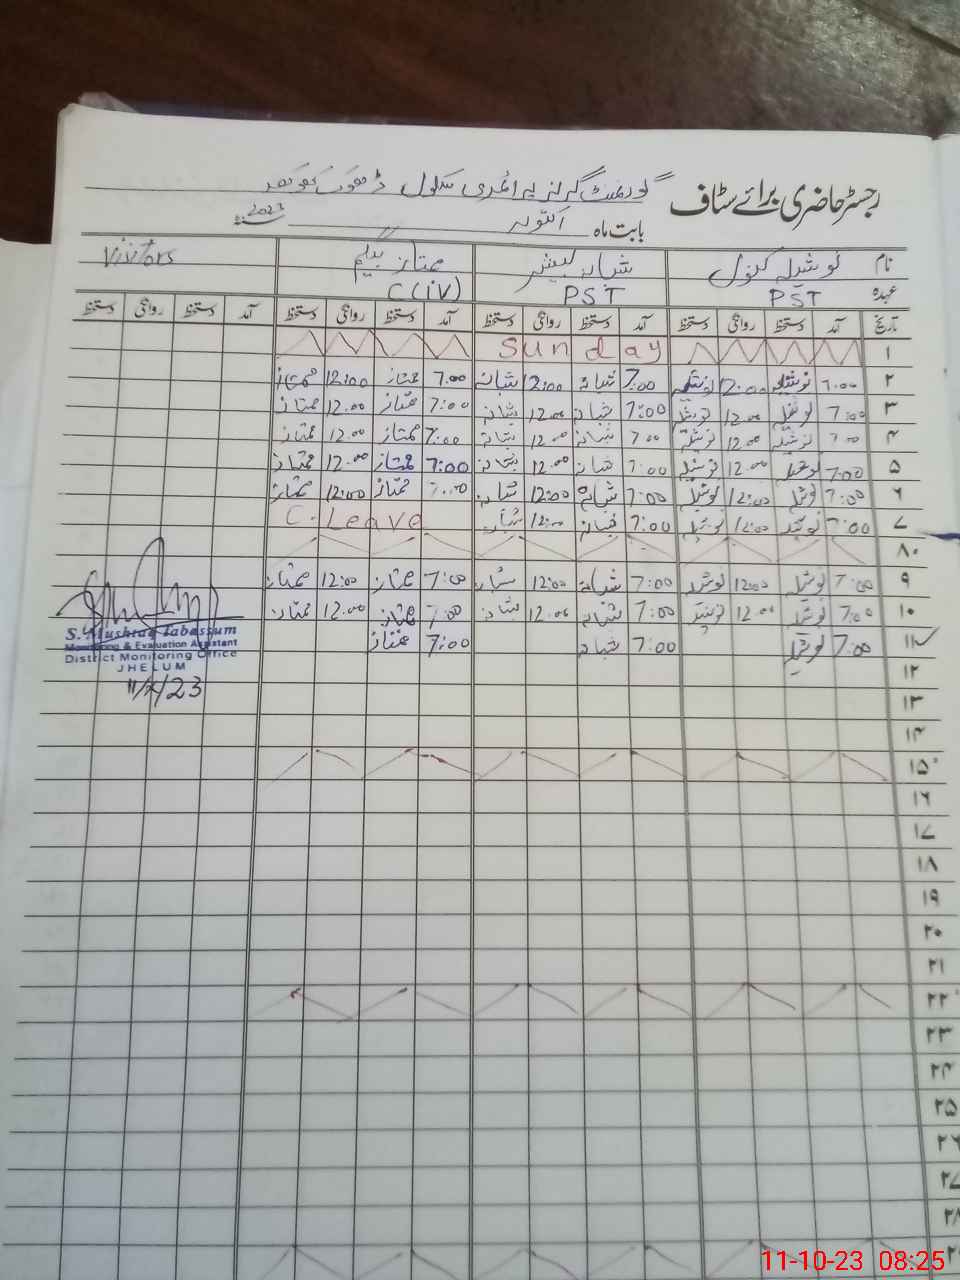 رجسٹر حاضری برائے سٹاف گورنمنٹ گرلز پرائمری سکول ڈھوک
بابت ماہ اکتوبر 2023
نام نوشیلہ کنول شبانہ ممتاز بیگم Visitors
عہدہ PST PST C(iv)
تاریخ آمد دستخط روانگی دستخط آمد دستخط روانگی دستخط آمد دستخط روانگی دستخط آمد دستخط روانگی دستخط
۱ Sunday
۲ 7:00 نوشیلہ 12:00 نوشیلہ 7:00 شبانہ 12:00 شبانہ 7:00 ممتاز 12:00 ممتاز
۳ 7:00 نوشیلہ 12:00 نوشیلہ 7:00 شبانہ 12:00 شبانہ 7:00 ممتاز 12:00 ممتاز
۴ 7:00 نوشیلہ 12:00 نوشیلہ 7:00 شبانہ 12:00 شبانہ 7:00 ممتاز 12:00 ممتاز
۵ 7:00 نوشیلہ 12:00 نوشیلہ 7:00 شبانہ 12:00 شبانہ 7:00 ممتاز 12:00 ممتاز
۶ 7:00 نوشیلہ 12:00 نوشیلہ 7:00 شبانہ 12:00 شبانہ 7:00 ممتاز 12:00 ممتاز
۷ 7:00 نوشیلہ 12:00 نوشیلہ 7:00 شبانہ 12:00 شبانہ C. Leave
۸
۹ 7:00 نوشیلہ 12:00 نوشیلہ 7:00 شبانہ 12:00 شبانہ 7:00 ممتاز 12:00 ممتاز
۱۰ 7:00 نوشیلہ 12:00 نوشیلہ 7:00 شبانہ 12:00 شبانہ 7:00 ممتاز 12:00 ممتاز
۱۱ 7:00 نوشیلہ 7:00 شبانہ 7:00 ممتاز
S. Mushtaq Tabassum
Monitoring & Evaluation Assistant
District Monitoring Office
JHELUM
11/x/23
۱۲
۱۳
۱۴
۱۵
۱۶
۱۷
۱۸
۱۹
۲۰
۲۱
۲۲
۲۳
۲۴
۲۵
۲۶
۲۷
۲۸
11-10-23 08:25